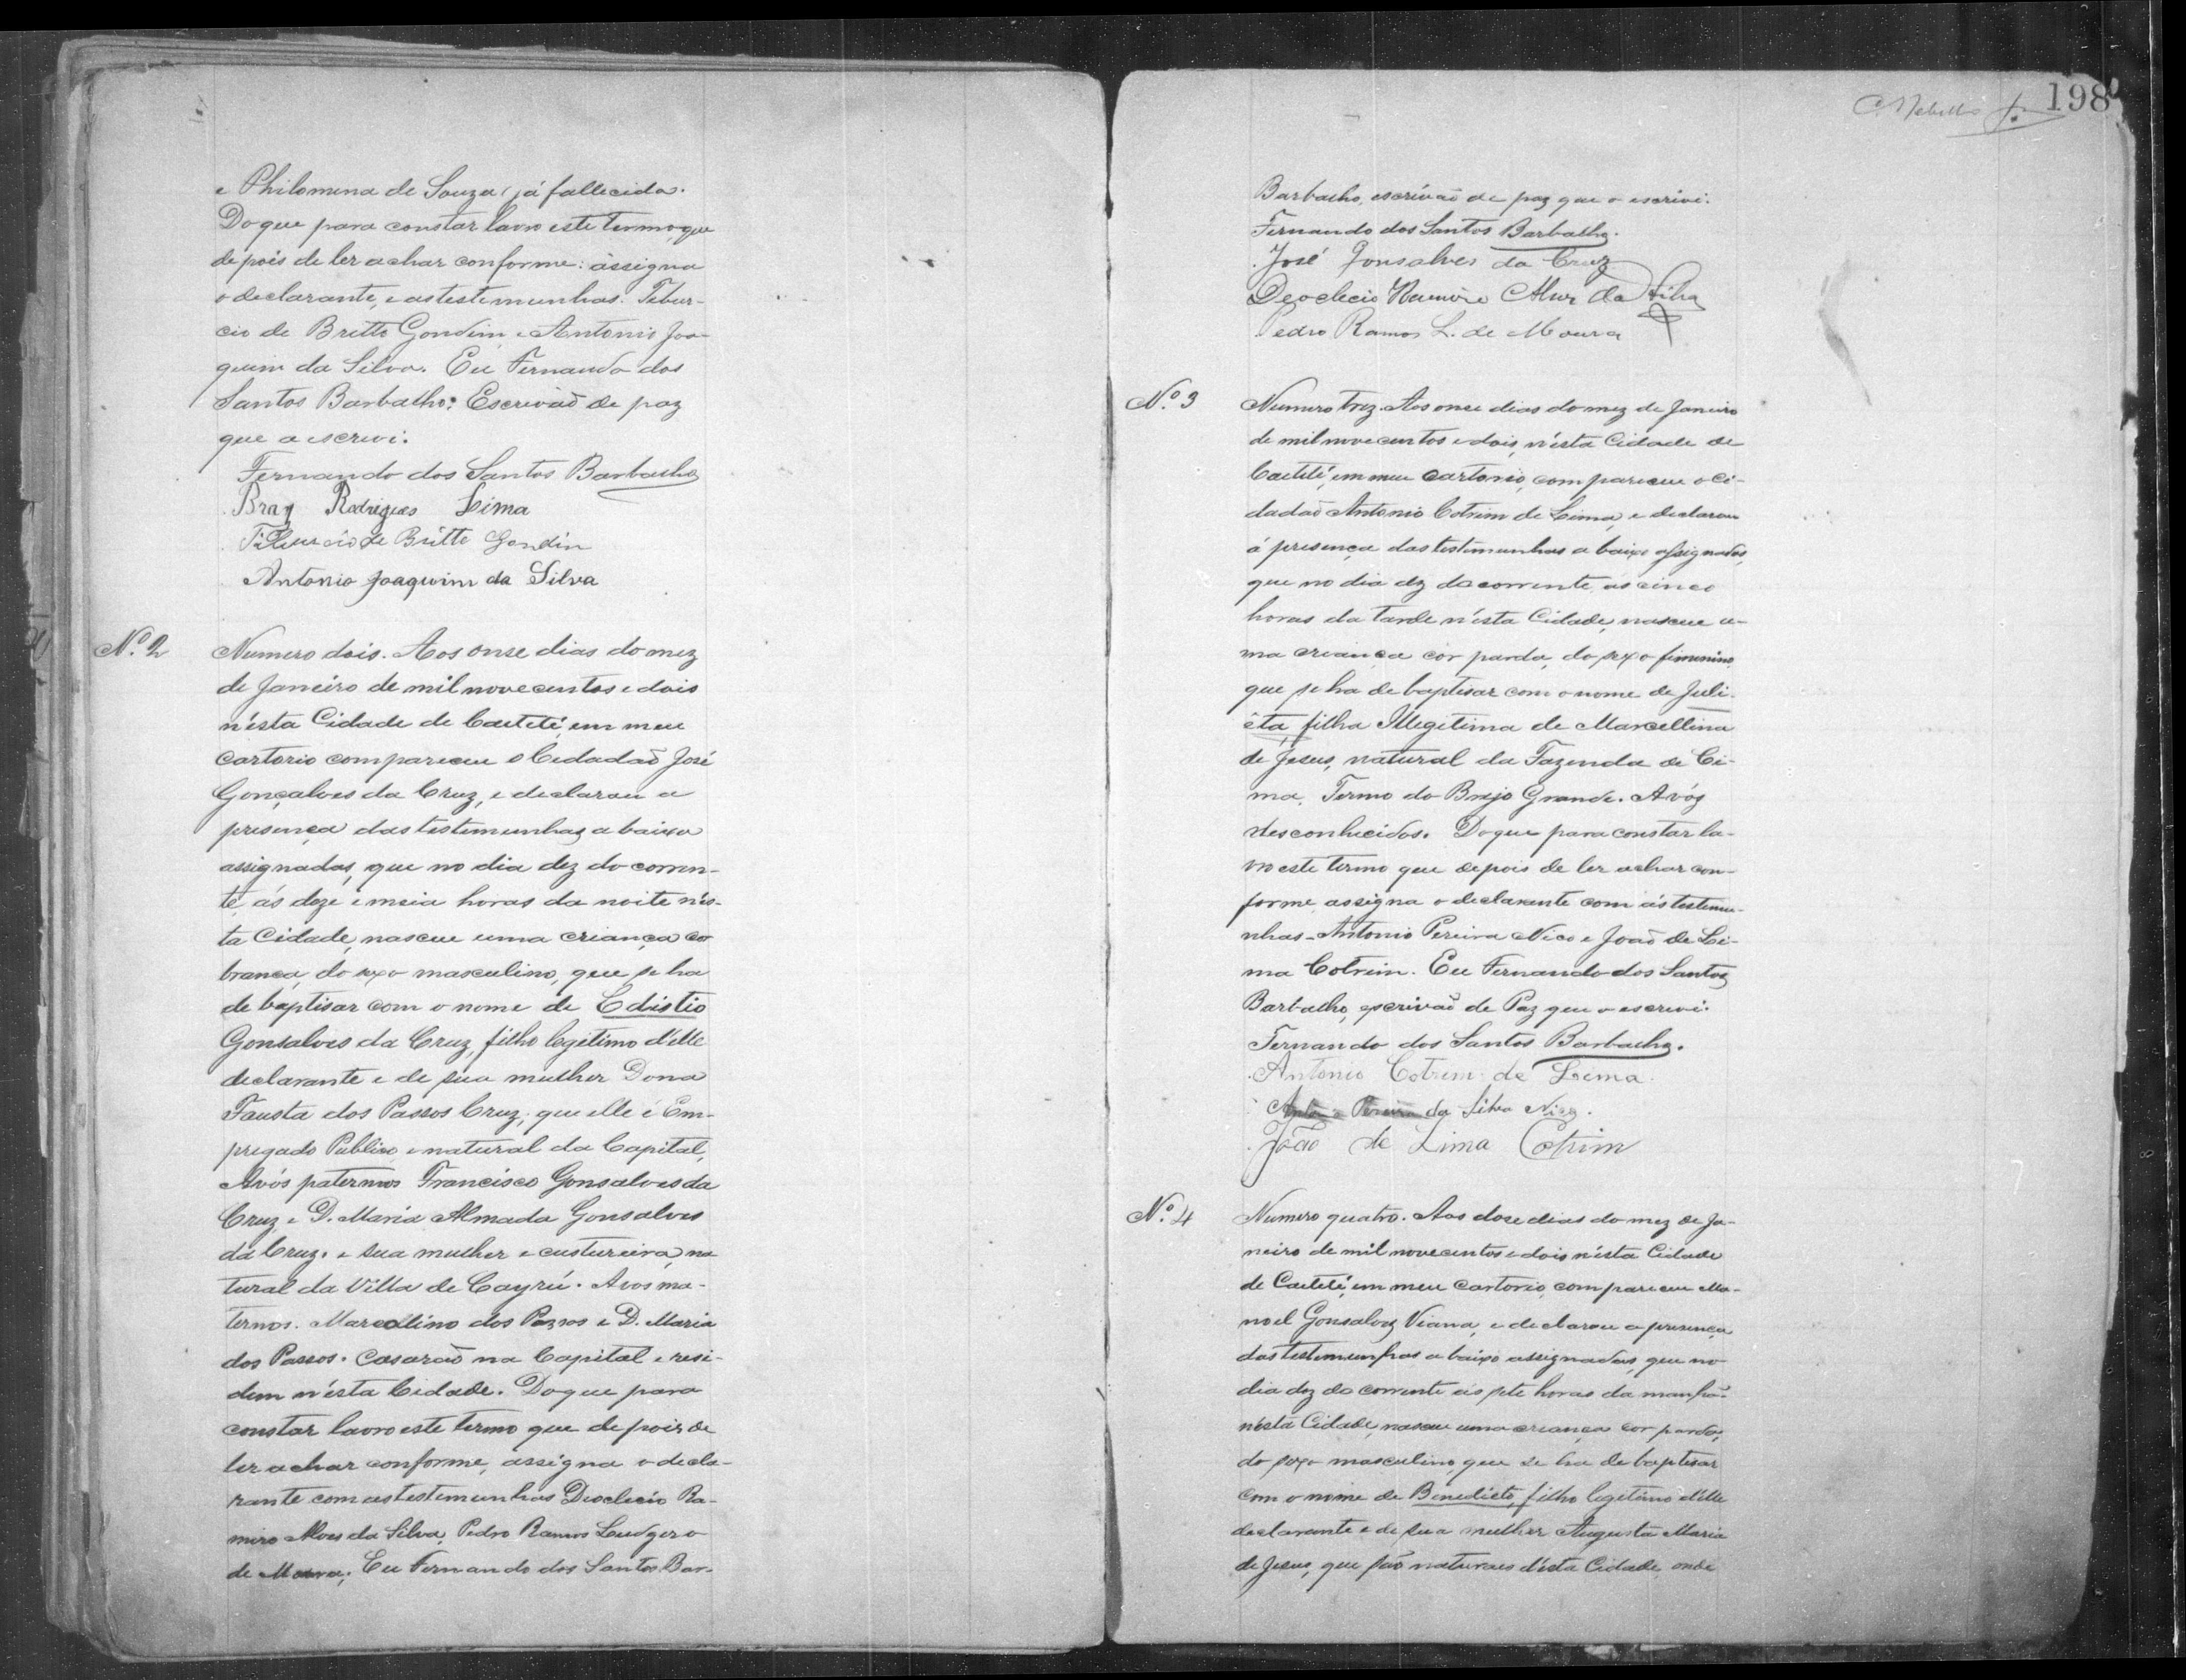 e Philomena de Souza, já fallecida.
Do que para constar lavro este termo, que
de pois de ler achar conforme: assigna
o declarante, e as testemunhas. Tibur-
cio de Britto Gondim e Antonio Joa-
quim da Silva. Eu Fernando dos
Santos Barbalho: Escrivaõ de paz
que a escrevi.
Fernando dos Santos Barbalho
Braz Rodrigues Lima
Tiburcio de Britto Gondin
Antonio Joaquim da Silva
Nº. 2
Numero dois. Aos onse dias do mez
de Janeiro de mil novecentos e dois
n'ésta Cidade de Caeteté, em meu
cartorio compareceu o Cidadaõ José
Gonçalves da Cruz, e declarou a
presença das testemunhas abaixo
assignadas, que no dia dez do corren-
te, ás doze e meia horas da noite n'és-
ta Cidade, nasceu uma criança cor
branca, do sexo masculino, que se ha
de baptisar com o nome de Edistio
Gonsalves da Cruz, filho legitimo d'elle
declarante e de sua mulher Dona
Fausta dos Passos Cruz, que elle é Em-
pregado Publico e natural da Capital,
Avós paternos Francisco Gonsalves da
Cruz, e D. Maria Almada Gonsalves
da Cruz. e sua mulher e custureira, na
tural da Villa de Cayrú. Avos ma-
ternos. Marcolino dos Passos e D. Maria
dos Passos. Casaraõ na Capital e resi-
dem n'ésta Cidade. Do que para
constar lavro este termo que de pois de
ler achar conforme, assigna o decla-
rante com as testemunhas Deoclecio Ra-
miro Alves da Silva, Pedro Ramos Ludgero
de Moura; Eu Fernando dos Santos Bar-
198
Barbalho, escrivaõ de paz que o escrivi.
Fernando dos Santos Barbalho.
José Gonsalves da Cruz
Deoclecio Ramiro Alves da Silva
Pedro Ramos L. de Moura
Nº. 3
Numero trez. Aos onse dias do mez de Janeiro
de mil novecentos e dois, n'ésta Cidade de
Caeteté, em meu cartorio, compareceu o Ci-
dadaõ Antonio Cotrim de Lima, e declarou
á presença das testemunhas a baixo assignadas,
que no dia dez do corrente, as cinco
horas da tarde n'ésta Cidade, nasceu u-
ma criança cor parda, do sexo feminino
que se ha de baptisar com o nome de Juli-
êta, filha Illegitima de Marcellina
de Jesus, natural da Fazenda de Ci-
ma, Termo do Brejo Grande. Avós
desconhecidos. Do que para constar la-
vro este termo que depois de ler achar con-
forme, assigna o declarante com ás testemu-
nhas - Antonio Pereira Nico e Joaõ de Li-
ma Cotrim. Eu Fernando dos Santos
Barbalho, escrivaõ de Paz que o escrevi.
Fernando dos Santos Barbalho.
Antonio Cotrim de Lima.
Antonio Pereira da Silva Nico.
João de Lima Cotrim
Nº. 4
Numero quatro. Aos dose dias do mez de Ja-
neiro de mil novecentos e dois n'ésta Cidade
de Caeteté, em meu Cartorio, compareceu Ma-
noel Gonsalvez Viana, e declarou a presença
das testemunhas a baixo assignadas, que no
dia dez do corrente ás sete horas da manhã
n'ésta Cidade, nasceu uma criança cor parda,
do sexo masculino, que se ha de baptisar
com o nome de Binedicto, filho legitimo d'elle
declarante e de sua mulher Augusta Maria
de Jesus, que são naturaes d'ésta Cidade, onde